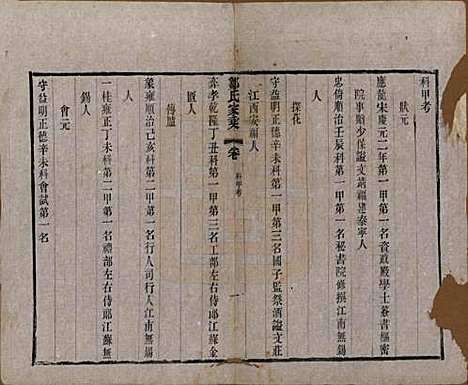 科甲考
狀元
應龍宋慶元二年第一甲第一名資政殿學士簽書樞密
院事贈少保諡文靖福建泰寧人
忠倚順治壬辰科第一甲第一名秘書院修撰江南無錫
人
探花
守益明正德辛未科第一甲第三名國子監祭酒諡文莊
江西安福人
鄒氏家乘
卷
科甲考
一
奕孝乾隆丁丑科第一甲第三名工部左右侍郎江蘇金
匱人
傳臚
象雍順治己亥科第二甲第一名行人司行人江南無錫
人
一桂雍正丁未科第二甲第一名禮部左右侍郎江蘇無
錫人
會元
守益明正德辛未科會試第一名